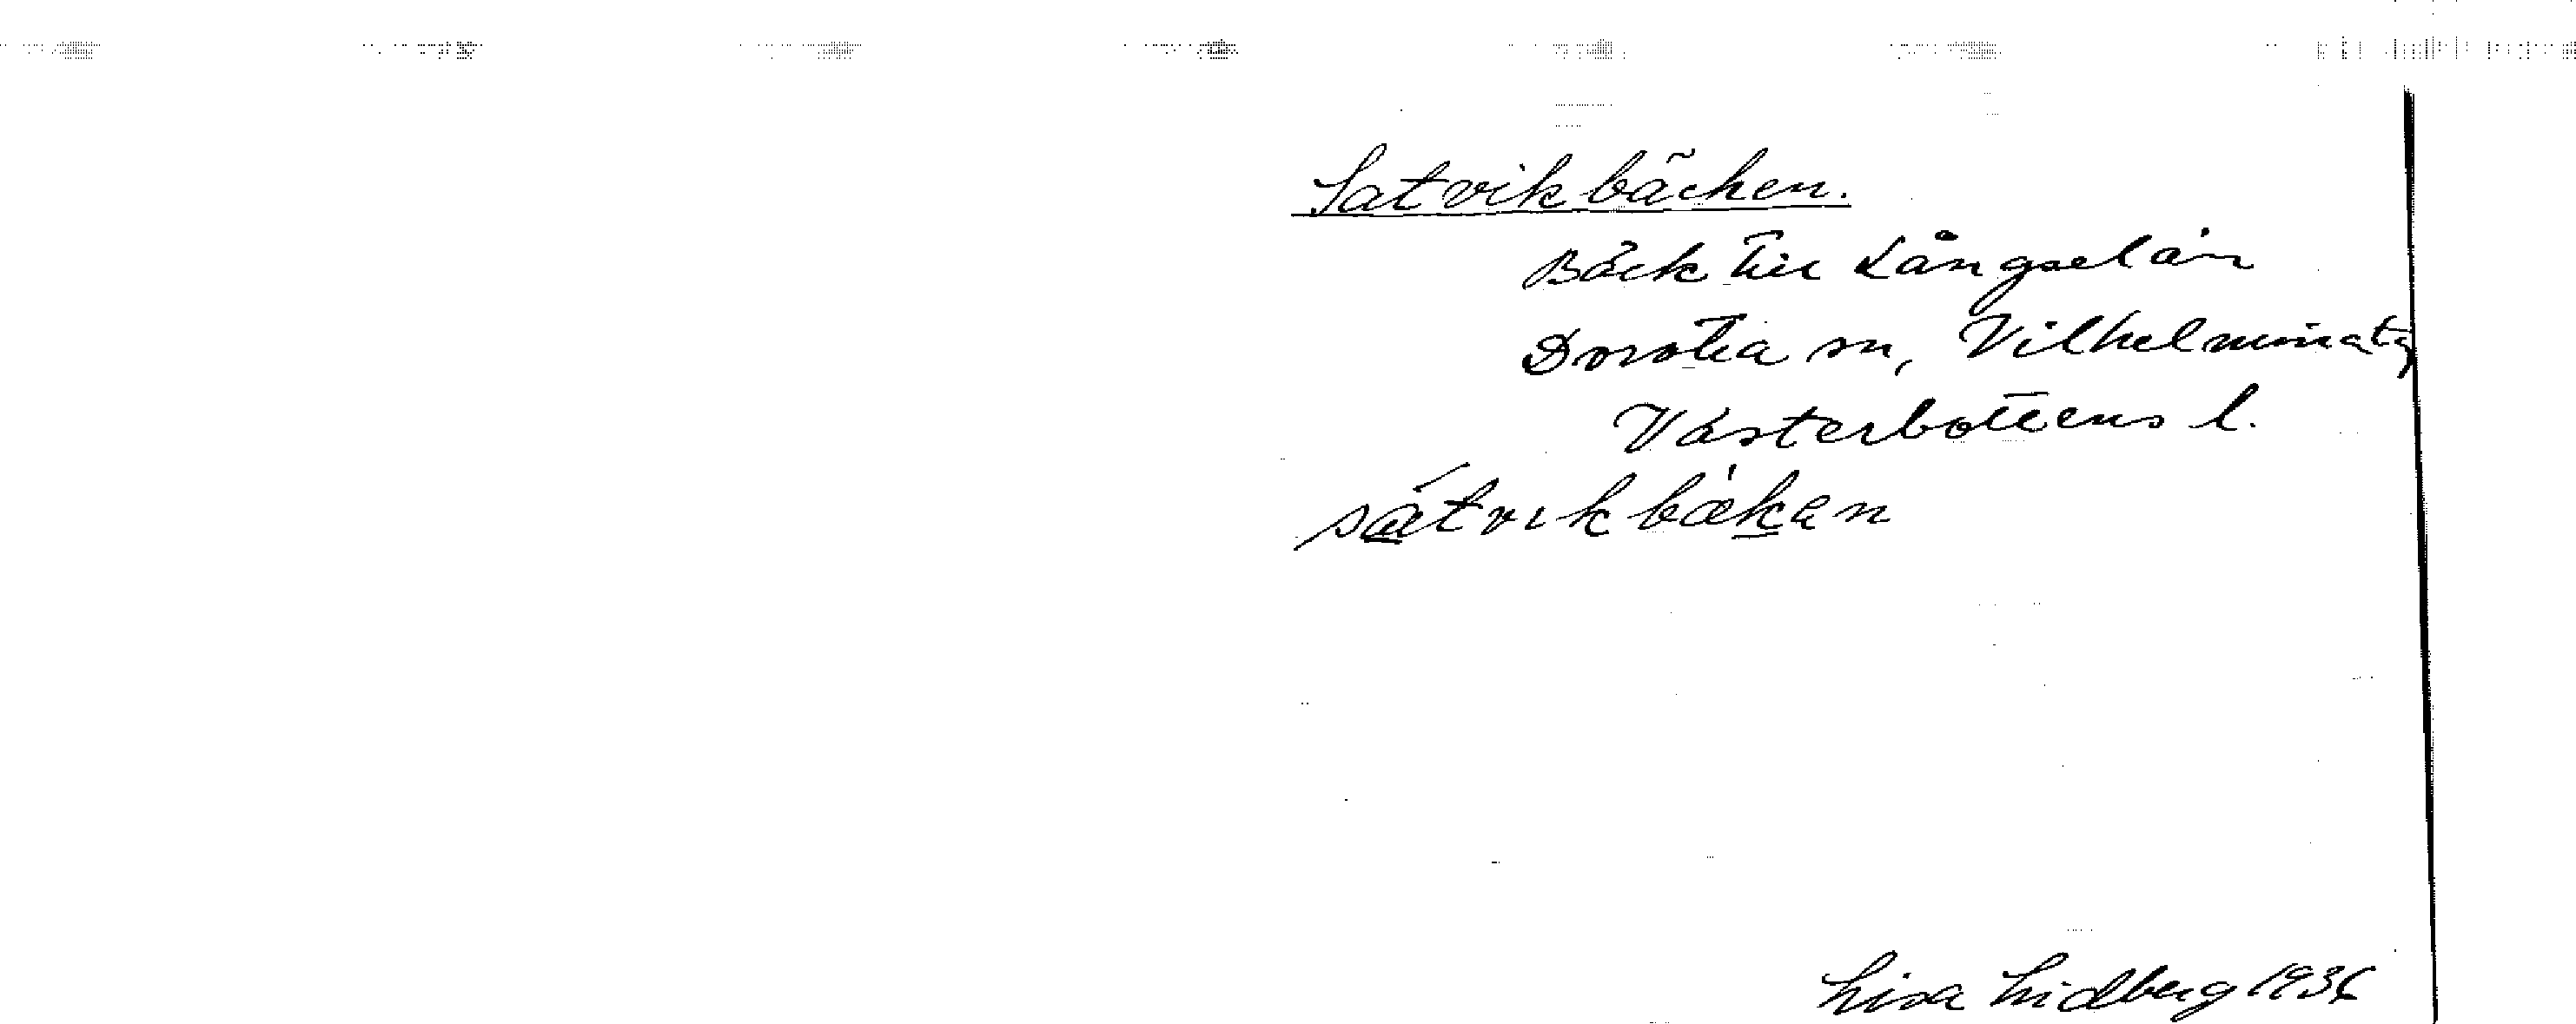 Satvikbäcken.
Bäck till Långselån
Dorotea sn, Vilhelmina tg
Västerbottens l.
sátvikbækan
Lisa Lidberg 1936